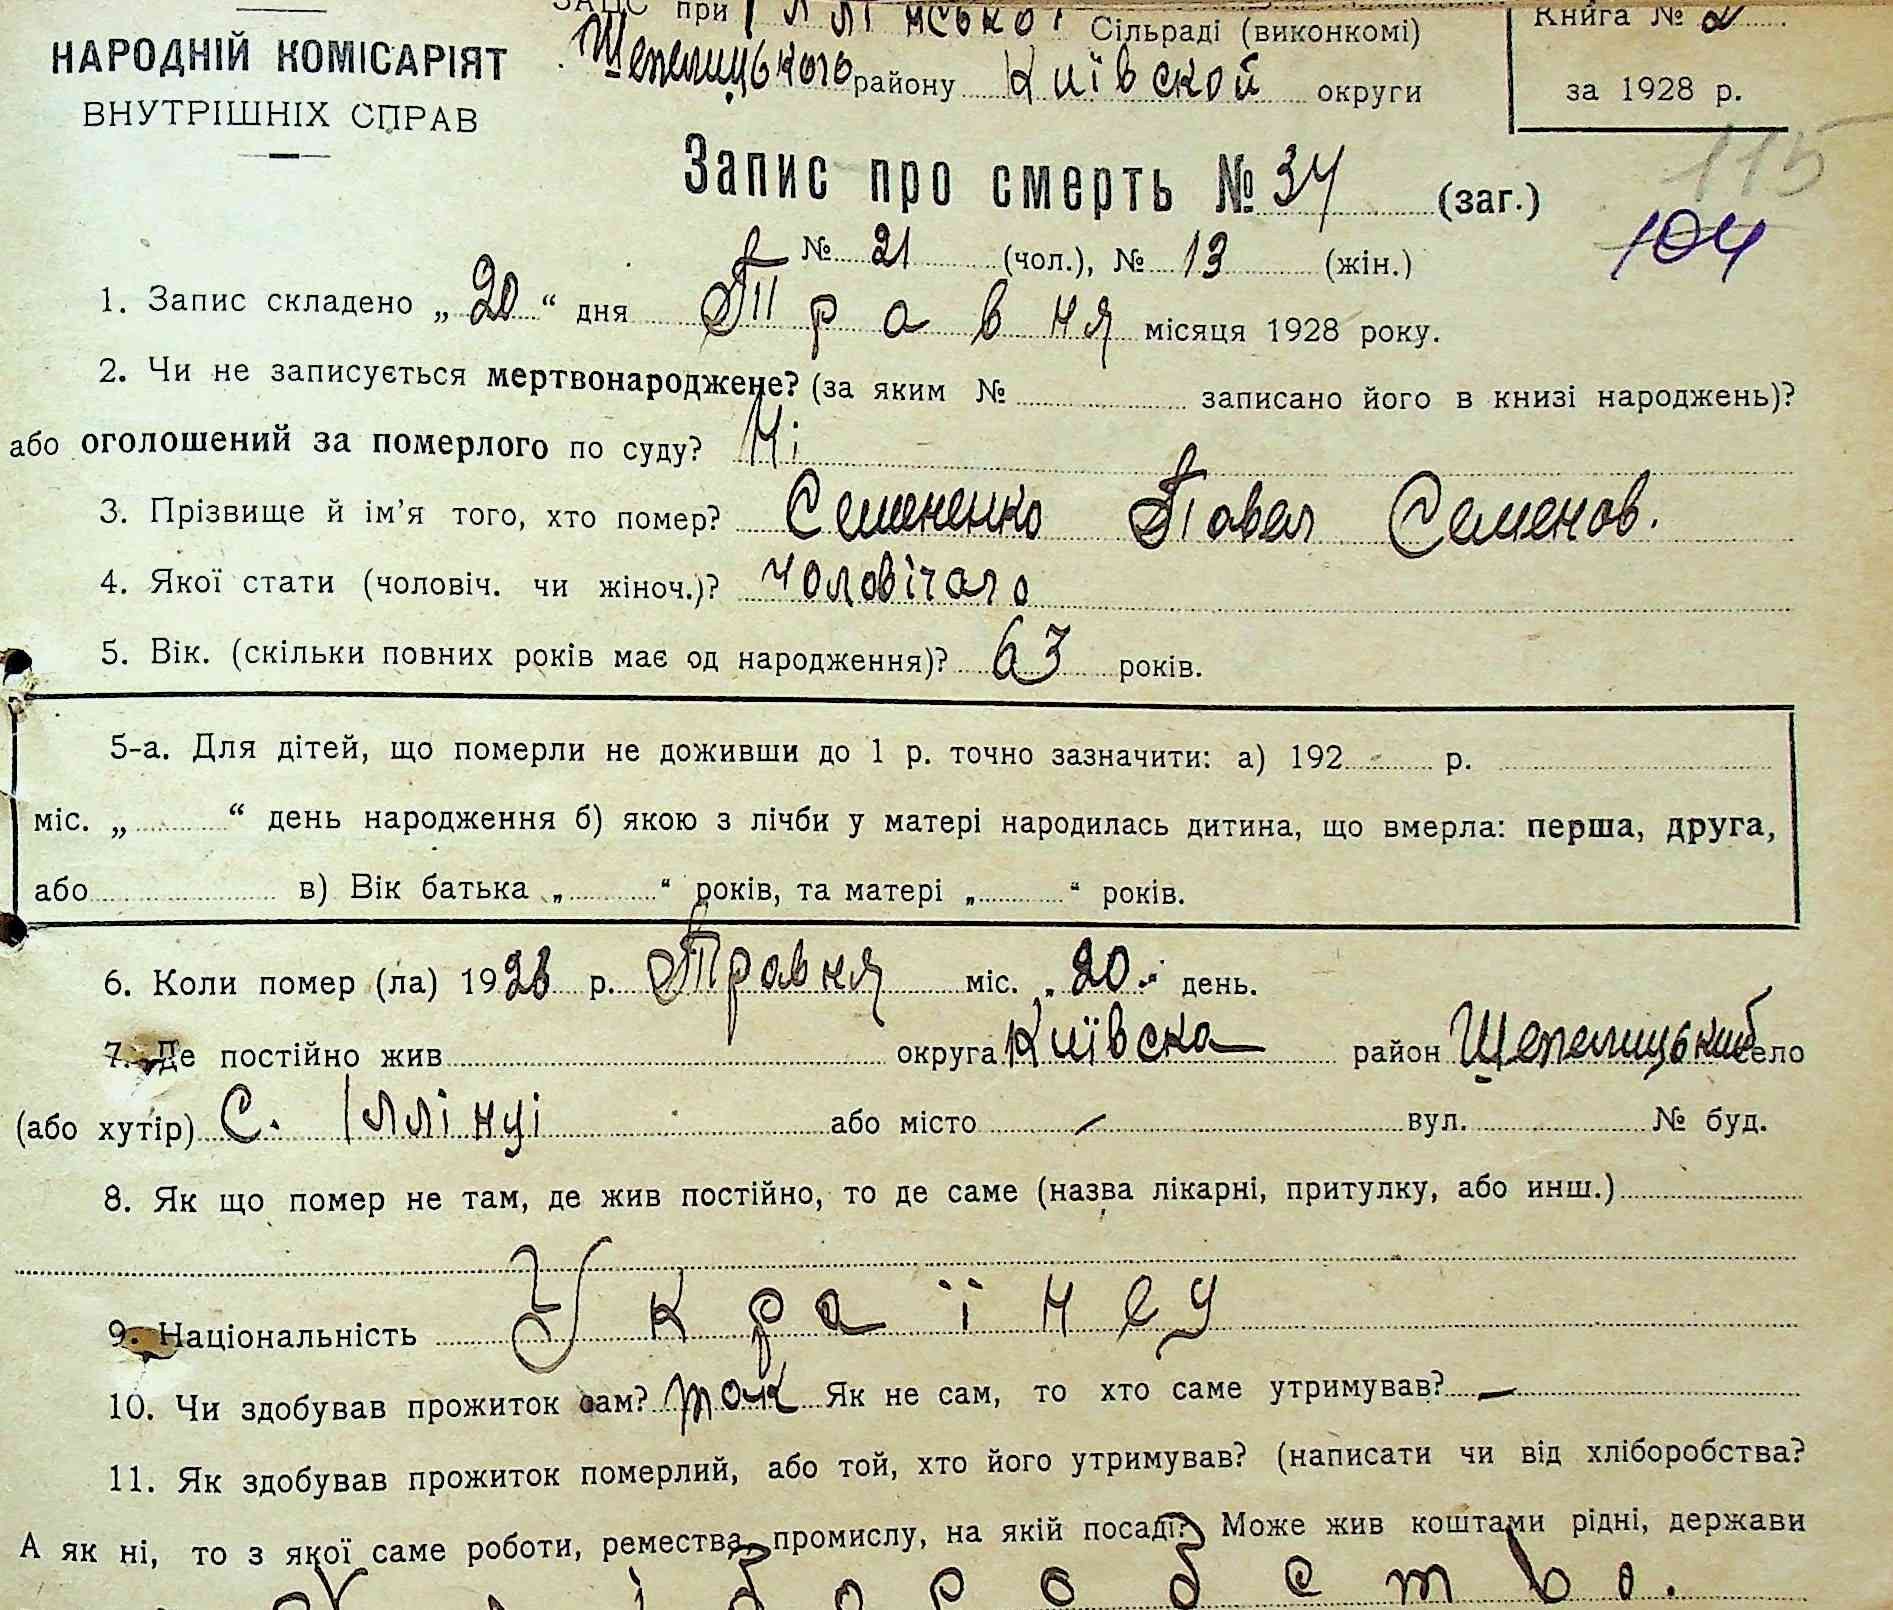 НАРОДНІЙ КОМІСАРІЯТ
ВНУТРІШНІХ СПРАВ
ЗАЦС при Іллінської Сільраді (виконкомі)
Шепелицького району Київской округи
Книга № 2
за 1928 р.
115
104
Запис про смерть № 34 (заг.)
№ 21 (чол.), № 13 (жін.)
1. Запис складено „20“ дня Травня місяця 1928 року.
2. Чи не записується мертвонароджене? (за яким № записано його в книзі народжень)?
або оголошений за померлого по суду? Ні
3. Прізвище й ім'я того, хто помер? Семененко Павел Семенов.
4. Якої стати (чоловіч. чи жіноч.)? чоловічаго
5. Вік. (скільки повних років має од народження)? 63 років.
5-а. Для дітей, що померли не доживши до 1 р. точно зазначити: а) 192 р.
міс. „ “ день народження б) якою з лічби у матері народилась дитина, що вмерла: перша, друга,
або в) Вік батька „ “ років, та матері „ “ років.
6. Коли помер (ла) 1928 р. Травня міс. „20“ день.
7. Де постійно жив округа Київска район Шепелицький село
(або хутір) С. Іллінці або місто – вул. № буд.
8. Як що помер не там, де жив постійно, то де саме (назва лікарні, притулку, або инш.)
9. Національність Українец
10. Чи здобував прожиток сам? так Як не сам, то хто саме утримував? –
11. Як здобував прожиток померлий, або той, хто його утримував? (написати чи від хліборобства?
А як ні, то з якої саме роботи, ремества, промислу, на якій посаді? Може жив коштами рідні, держави
Хліборобство.